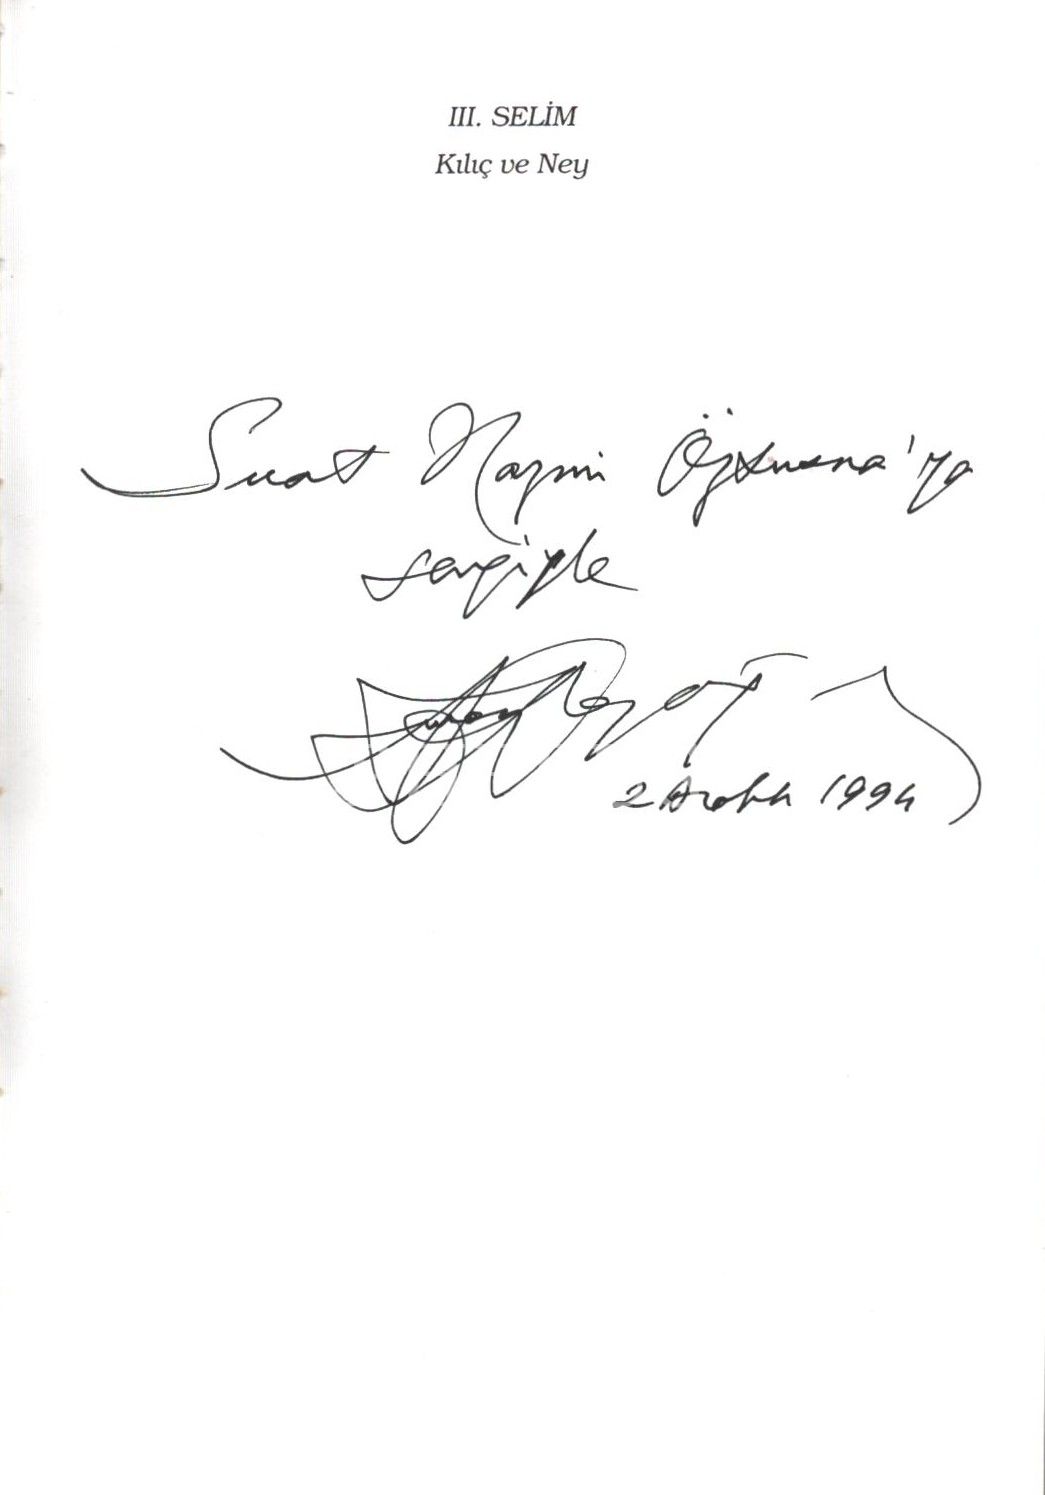 III. SELİM
Kılıç ve Ney
Suat Nazmi Öztuna'ya
sevgiyle
2 Aralık 1994